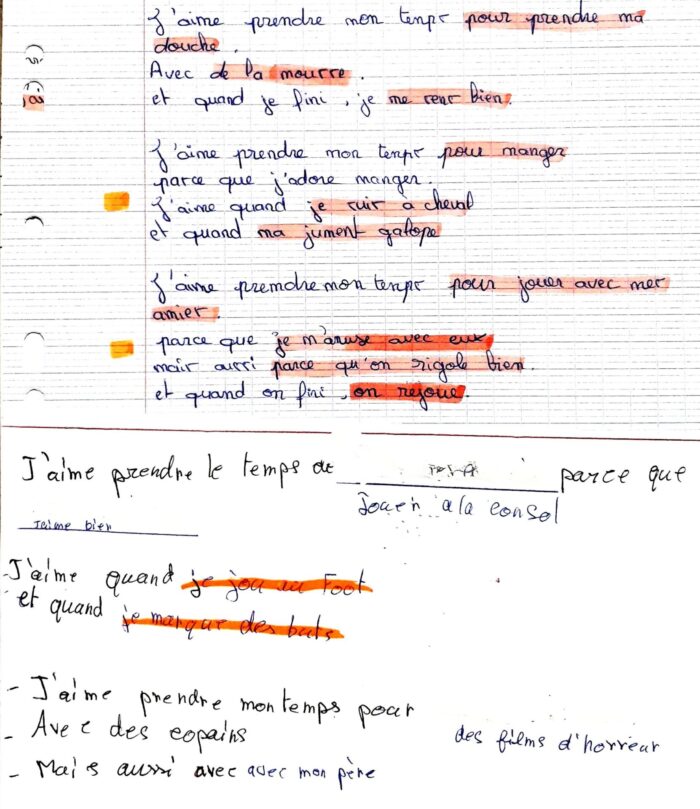 J'aime prendre mon temps pour prendre ma
douche.
Avec de la mousse.
et quand je fini, je me sens bien.
J'aime prendre mon temps pour manger
parce que j'adore manger.
J'aime quand je suis à cheval
et quand ma jument galope
J'aime prendre mon temps pour jouer avec mes
amies.
parce que je m'amuse avec eux
mais aussi parce qu'on rigole bien.
et quand on fini, on rejoue.
J'aime prendre le temps de parce que
Jouer a la consol
J'aime bien
- J'aime quand je jou au Foot
et quand je marque des buts
- J'aime prendre mon temps pour
- Avec des copains
des films d'horreur
- Mais aussi avec avec mon père